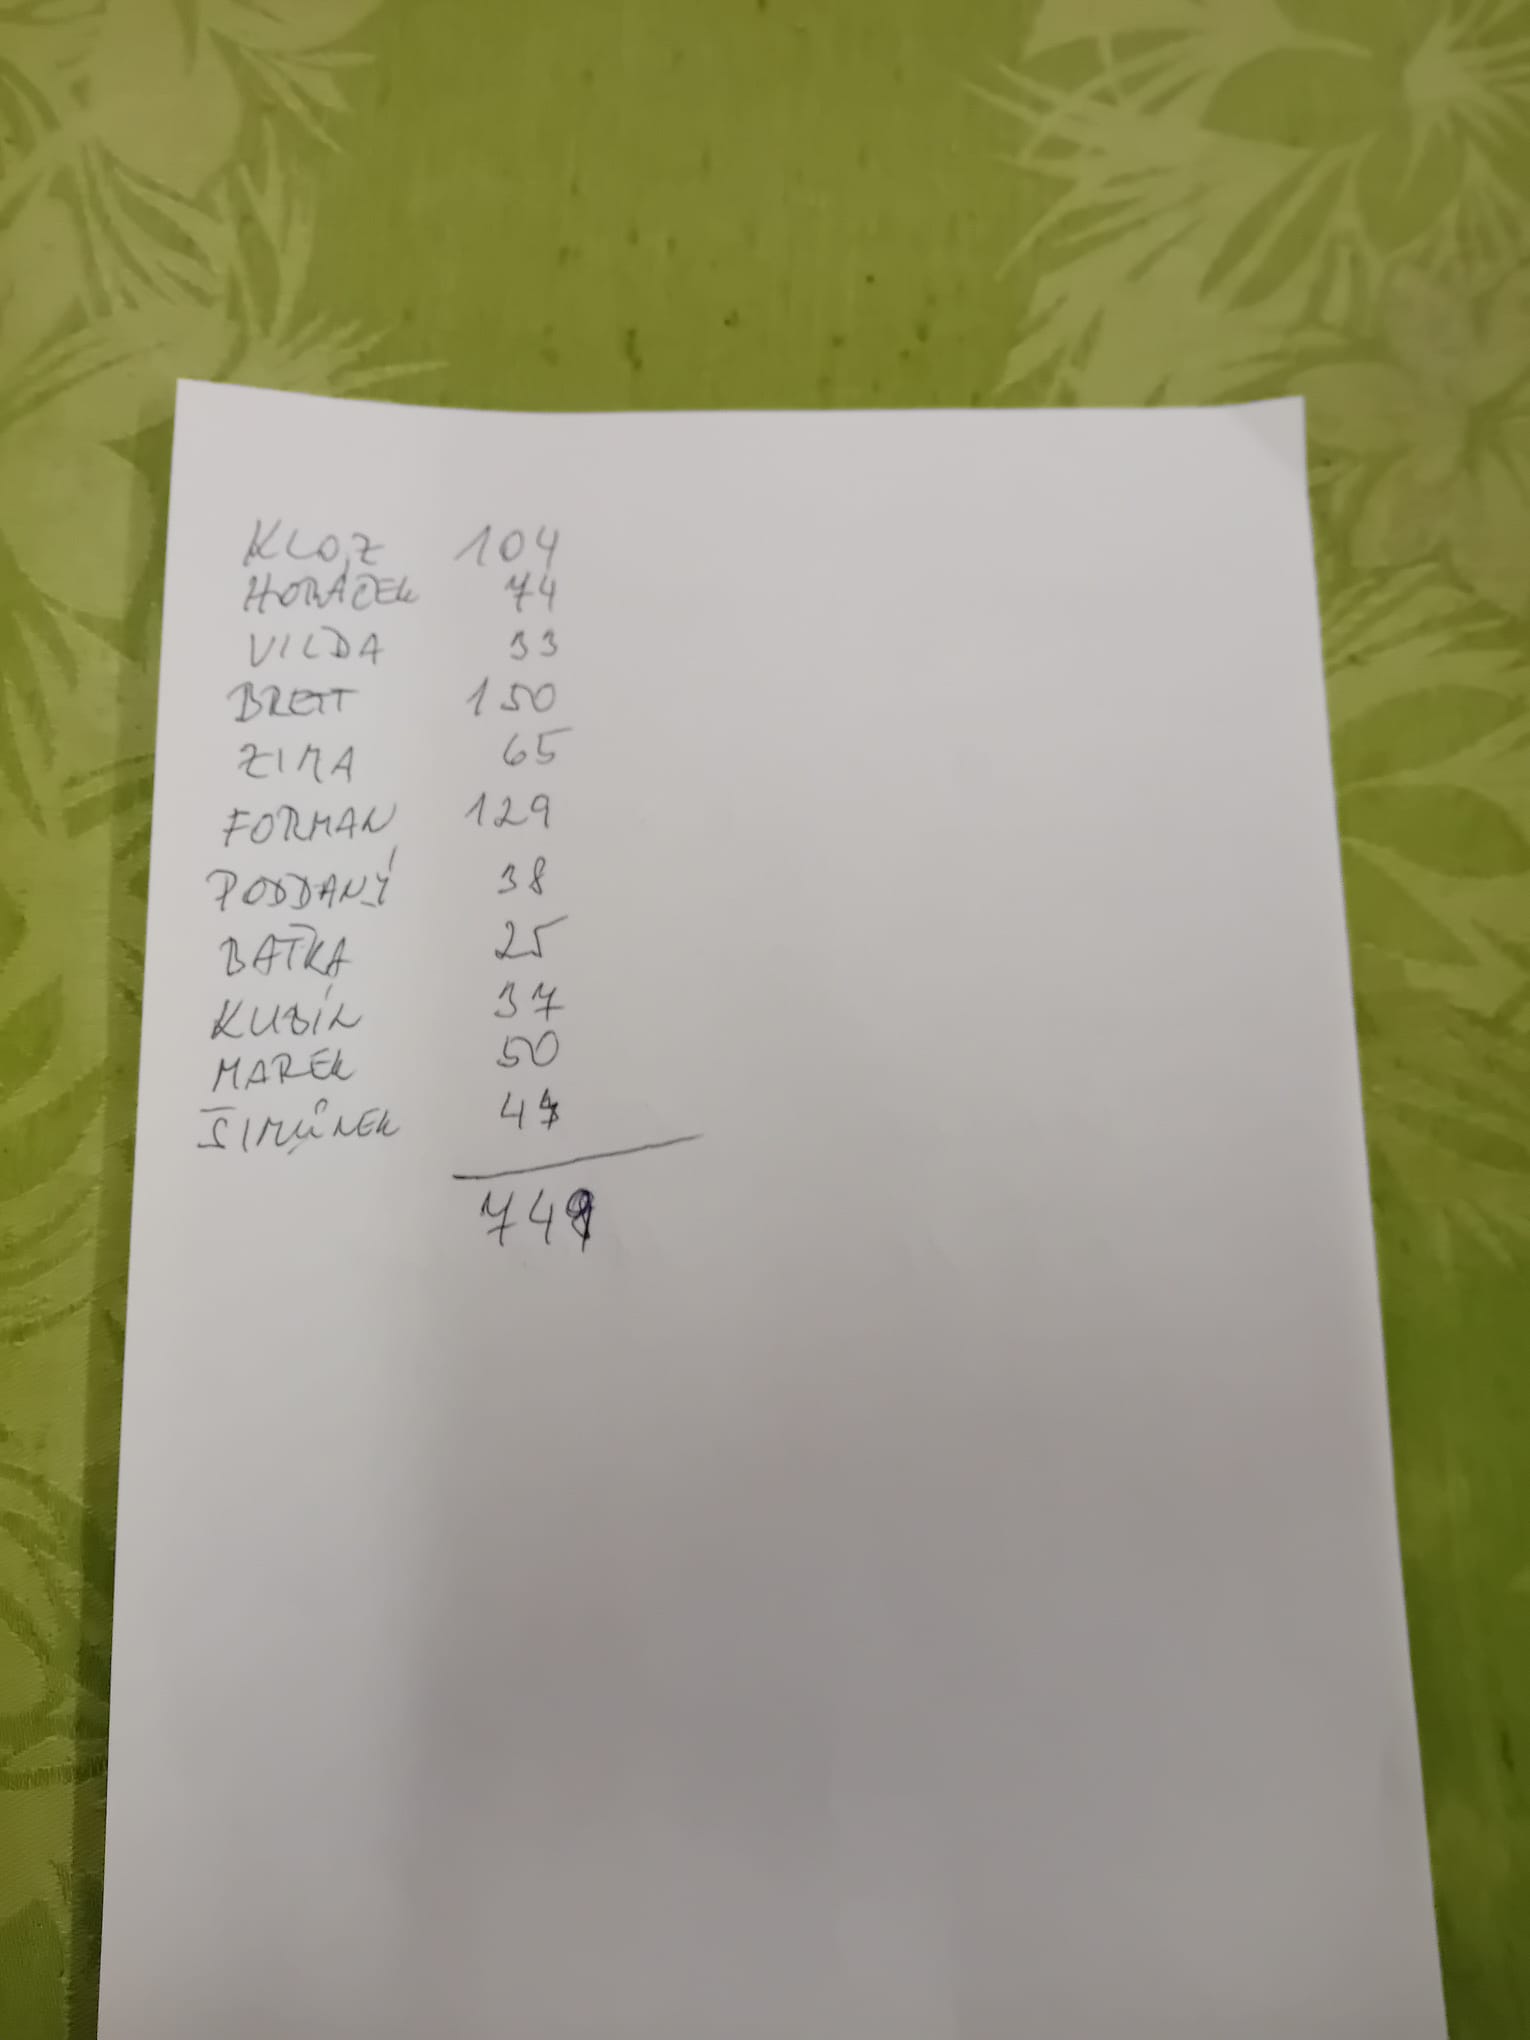 KLOZ 104
HORÁČEK 74
VILDA 33
BRETT 150
ZIMA 65
FORMAN 129
PODDANÝ 38
BAŤKA 25
KUBÍN 37
MAREK 50
ŠIMŮNEK 44
749